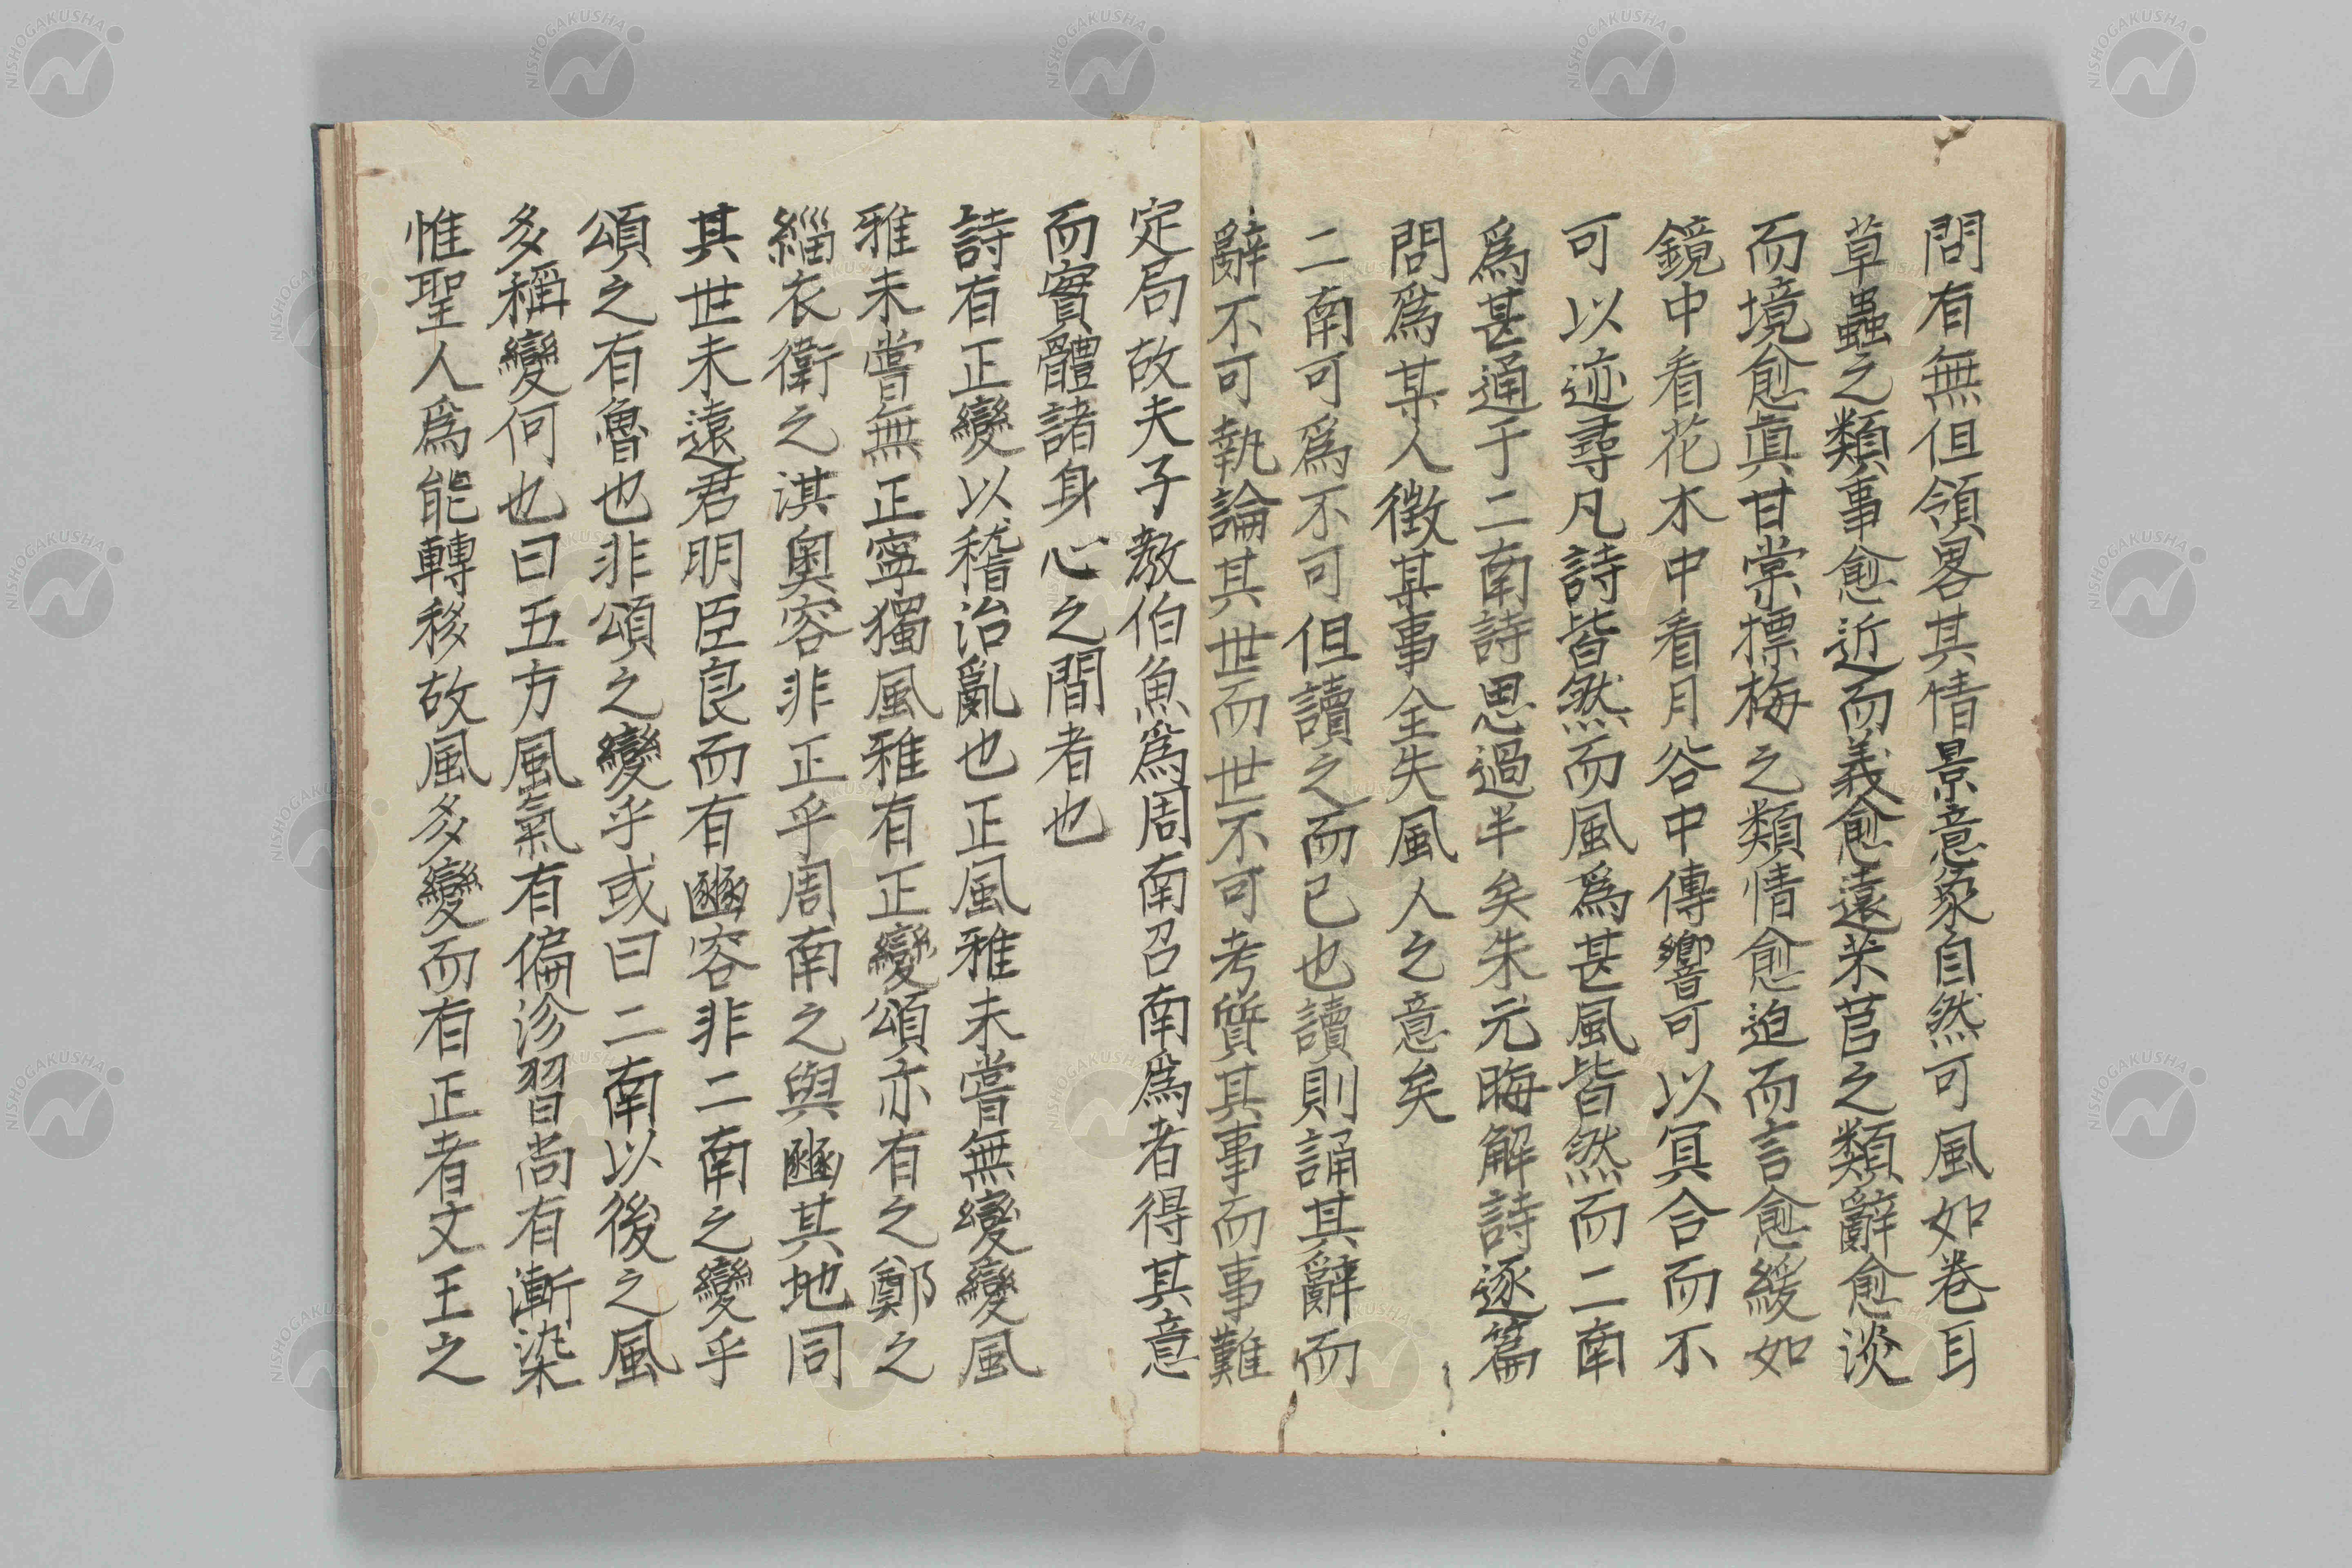 問有無但領畧其情景意象自然可風如卷耳
草蟲之類事愈近而義愈遠芣苢之類辭愈淡
而境愈眞甘棠摽梅之類情愈迫而言愈緩如
鏡中看花水中看月谷中傳響可以冥合而不
可以迹尋凡詩皆然而風爲甚風皆然而二南
爲甚通于二南詩思過半矣朱元晦解詩逐篇
問爲某人徴某事全失風人之意矣
二南可爲不可但讀之而已也讀則誦其辭而
辭不可執論其世而世不可考質其事而事難
定局故夫子教伯魚爲周南召南爲者得其意
而實體諸身心之間者也
詩有正變以稽治亂也正風雅未嘗無變變風
雅未嘗無正寧獨風雅有正變頌亦有之鄭之
緇衣衛之淇奧容非正乎周南之與豳其地同
其世未遠君明臣良而有豳容非二南之變乎
頌之有魯也非頌之變乎或曰二南以後之風
多稱變何也曰五方風氣有偏沴習尚有漸染
惟聖人爲能轉移故風多變而有正者文王之
NISHOGAKUSHA